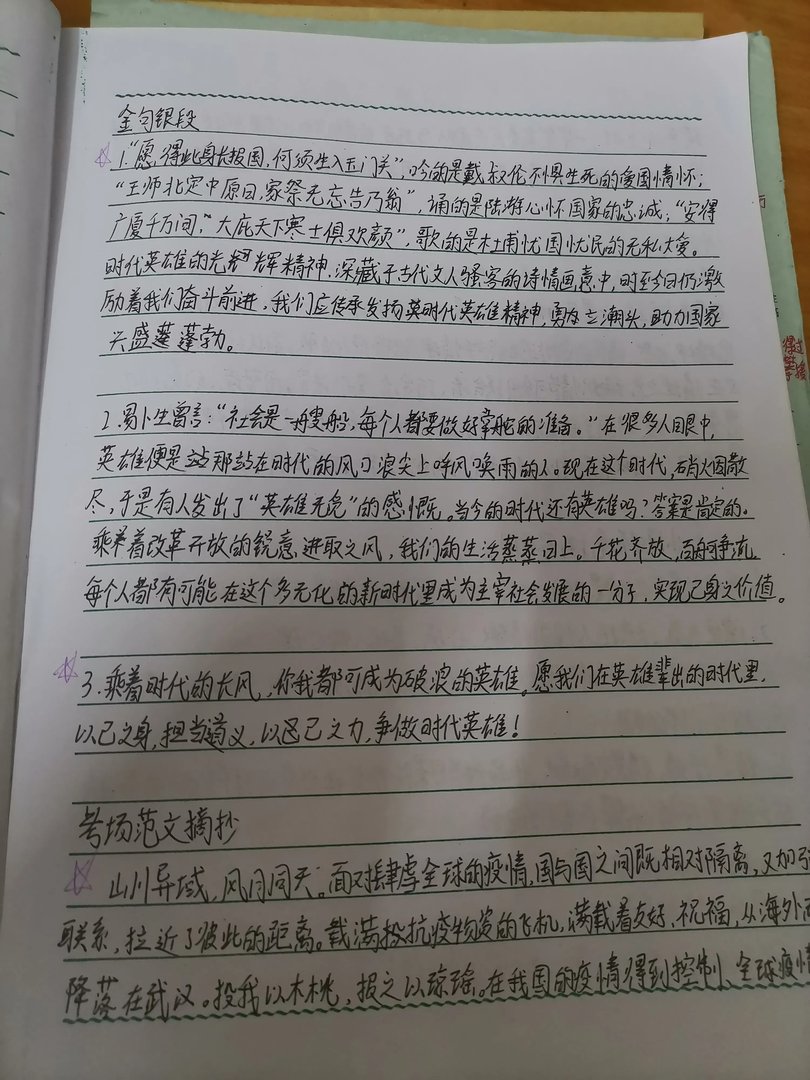 金句银段
1.“愿得此身长报国，何须生入玉门关”，吟的是戴叔伦不惧生死的爱国情怀；
“王师北定中原日，家祭无忘告乃翁”，诵的是陆游心怀国家的忠诚；“安得
广厦千万间，大庇天下寒士俱欢颜”，歌的是杜甫忧国忧民的无私大爱。
时代英雄的光辉精神，深藏于古代文人骚客的诗情画意中，时至今日仍激
励着我们奋斗前进。我们应传承发扬英时代英雄精神，勇立潮头，助力国家
兴盛蓬勃。
2.易卜生曾言：“社会是一艘船，每个人都要做好掌舵的准备。”在很多人眼中，
英雄便是那站在时代的风口浪尖上呼风唤雨的人。现在这个时代，硝火因散
尽，于是有人发出了“英雄无觅”的感慨。当今的时代还有英雄吗？答案是肯定的。
乘着改革开放的锐意进取之风，我们的生活蒸蒸日上。千花齐放，百舸争流，
每个人都有可能在这个多元化的新时代里成为主宰社会发展的一分子，实现己身之价值。
3.乘着时代的长风，你我都可成为破浪的英雄。愿我们在英雄辈出的时代里，
以己之身，担当道义，以己之力，争做时代英雄！
考场范文摘抄
山川异域，风月同天。面对肆虐全球的疫情，国与国之间既相对隔离，又加强
联系，拉近了彼此的距离。载满抗疫物资的飞机，满载着友好、祝福，从海外
降落在武汉。投我以木桃，报之以琼瑶。在我国的疫情得到控制，全球疫情